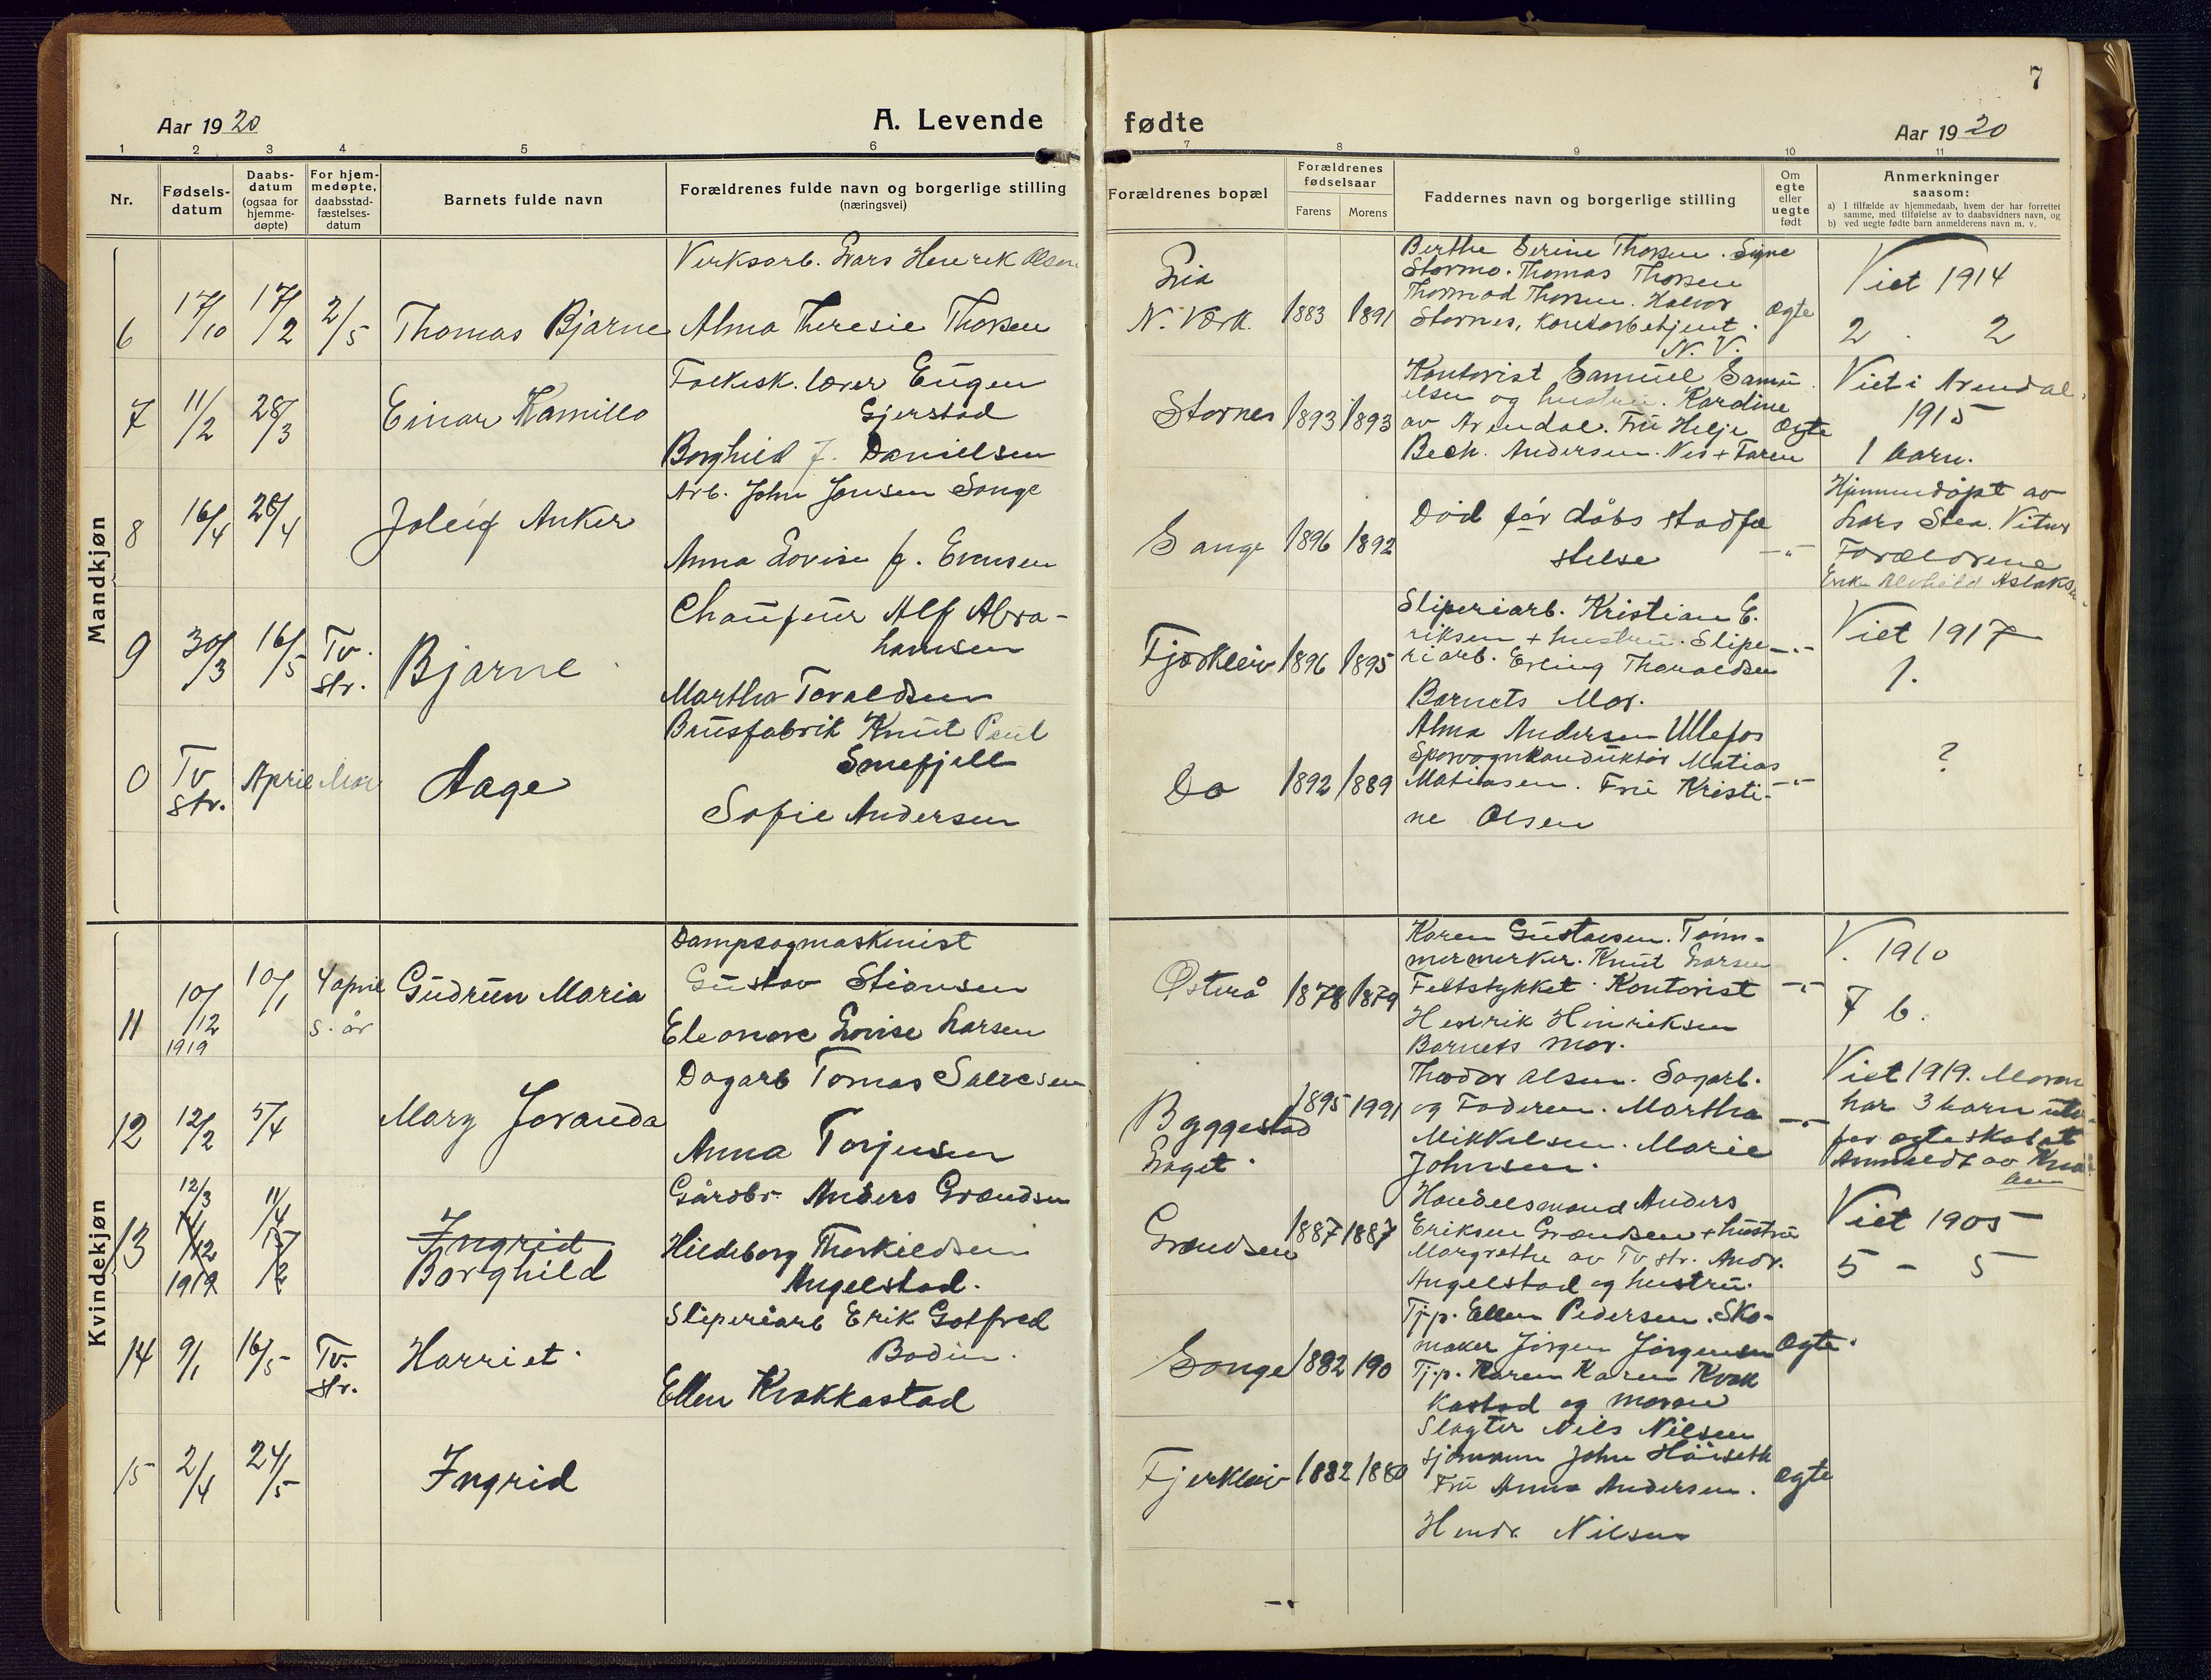 7
Aar 1920
A. Levende
fødte
Aar 1920
1 2 3 4 5 6 7 8 9 10 11
Nr.
Fødsels-
datum
Daabs-
datum
(ogsaa for
hjemme-
døpte)
For hjem-
medøpte,
daabsstad-
fæstelses-
datum
Barnets fulde navn
Forældrenes fulde navn og borgerlige stilling
(næringsvei)
Forældrenes bopæl
Forældrenes
fødselsaar
Farens Morens
Faddernes navn og borgerlige stilling
Om
egte
eller
uegte
født
Anmerkninger
saasom:
a) I tilfælde av hjemmedaab, hvem der har forrettet
samme, med tilføielse av to daabsvidners navn, og
b) ved uegte fødte barn anmelderens navn m. v.
Mandkjøn
6
17/10
17/2
2/5
Thomas Bjarne
Verksarb. Lars Henrik Olsen
Alma Theresie Thorsen
N. Værk.
1883 1891
Berthe Serine Thorsen. Signe
Stormo. Thomas Thorsen
Thormod Thorsen. Halvor
Stornes, Kontorbetjent.
N. V.
Ogte
Viet 1914
2 . 2
7
11/2
28/3
Einar Kamillo
Folkesk. lærer Eugen
Gjerstad
Borghild f. Danielsen
Stornes
1893 1893
Kontorist Samuel Samu
elsen og hustru. Kardine
av Arendal. Fru Helje
Bech. Andersen. Nes + Faren
Ogte
Viet i Arendal.
1915
1 barn.
8
16/4
28/4
Joleif Anker
Arb. John Jonsen Songe
Anna Lovise f. Evensen
Songe
1896 1892
Död för dåbs stadfæ
stelse
-"-
Hjemmedöpt av
Lars Stea. Vitner
Forældrene
Enke Alvhild Aslaks
9
30/3
16/5
Tv.
str.
Bjarne
Chaufeur Alf Abra-
hamsen
Martha Toraldsen
Fjærkleiv
1896 1895
Sliperiarb. Kristian E.
riksen + hustru. Slipe
riarb. Erling Thoraldsen
Barnets Mor.
-"-
Viet 1917
1.
0
Tv
str.
April
Mai
Aage
Brusfabrik Knut Paul
Smefjell
Sofie Andersen
Do
1892 1889
Alma Andersen Ullefos
Sporvognkonduktör Matias
Matiasen. Fru Kristi-
ne Olsen
-"-
?
Kvindekjøn
11
10/12
1919
10/1
4 april
s. år
Gudrun Maria
Dampsagmaskinist
Gustav Stiansen
Eleonore Lovise Larsen
Østerå
1878 1879
Karen Gustavsen. Töm-
mermerker. Knut Larsen
Feltstykket. Kontorist
Henrik Hinriksen
Barnets mor.
-"-
V. 1910
7 b.
12
12/2
5/4
Mary Jovanda
Dagarb Tomas Salvesen
Anna Torjusen
Byggestad
Laget.
1895 1991
Theodor Olsen. Sagarb.
og Faderen. Martha
Mikkelsen. Marie
Johnsen.
-"-
Viet 1919. Moren
har 3 barn uten
for egteskabet
13
12/3
11/12
1919
11/4
15/2
Ingrid
Borghild
Gårdbr Anders Grændsen
Hildeborg Thorkildsen
Angelstad.
Grændsen
1887 1887
Handelsmand Anders
Eriksen Grændsen + hustru
Margrethe av Tv.str. Andr.
Angelstad og hustru.
Viet 1905
5 - 5
14
9/1
16/5
Tv.
str.
Harriet.
Sliperiarb Erik Gotfred
Bodin.
Ellen Kvakkastad
Songe
1882 190
Tj.p. Ellen Pedersen. Sko-
maker Jörgen Jörgensen
Tj.p. Karen Karen Kvak
kastad og moren
Ogte.
15
2/4
24/5
Ingrid
Fjerkleiv
1882 1880
Slagter Nils Nilsen
Sjömann John Höiseth
Fru Anna Andersen.
Nilsen
ogte